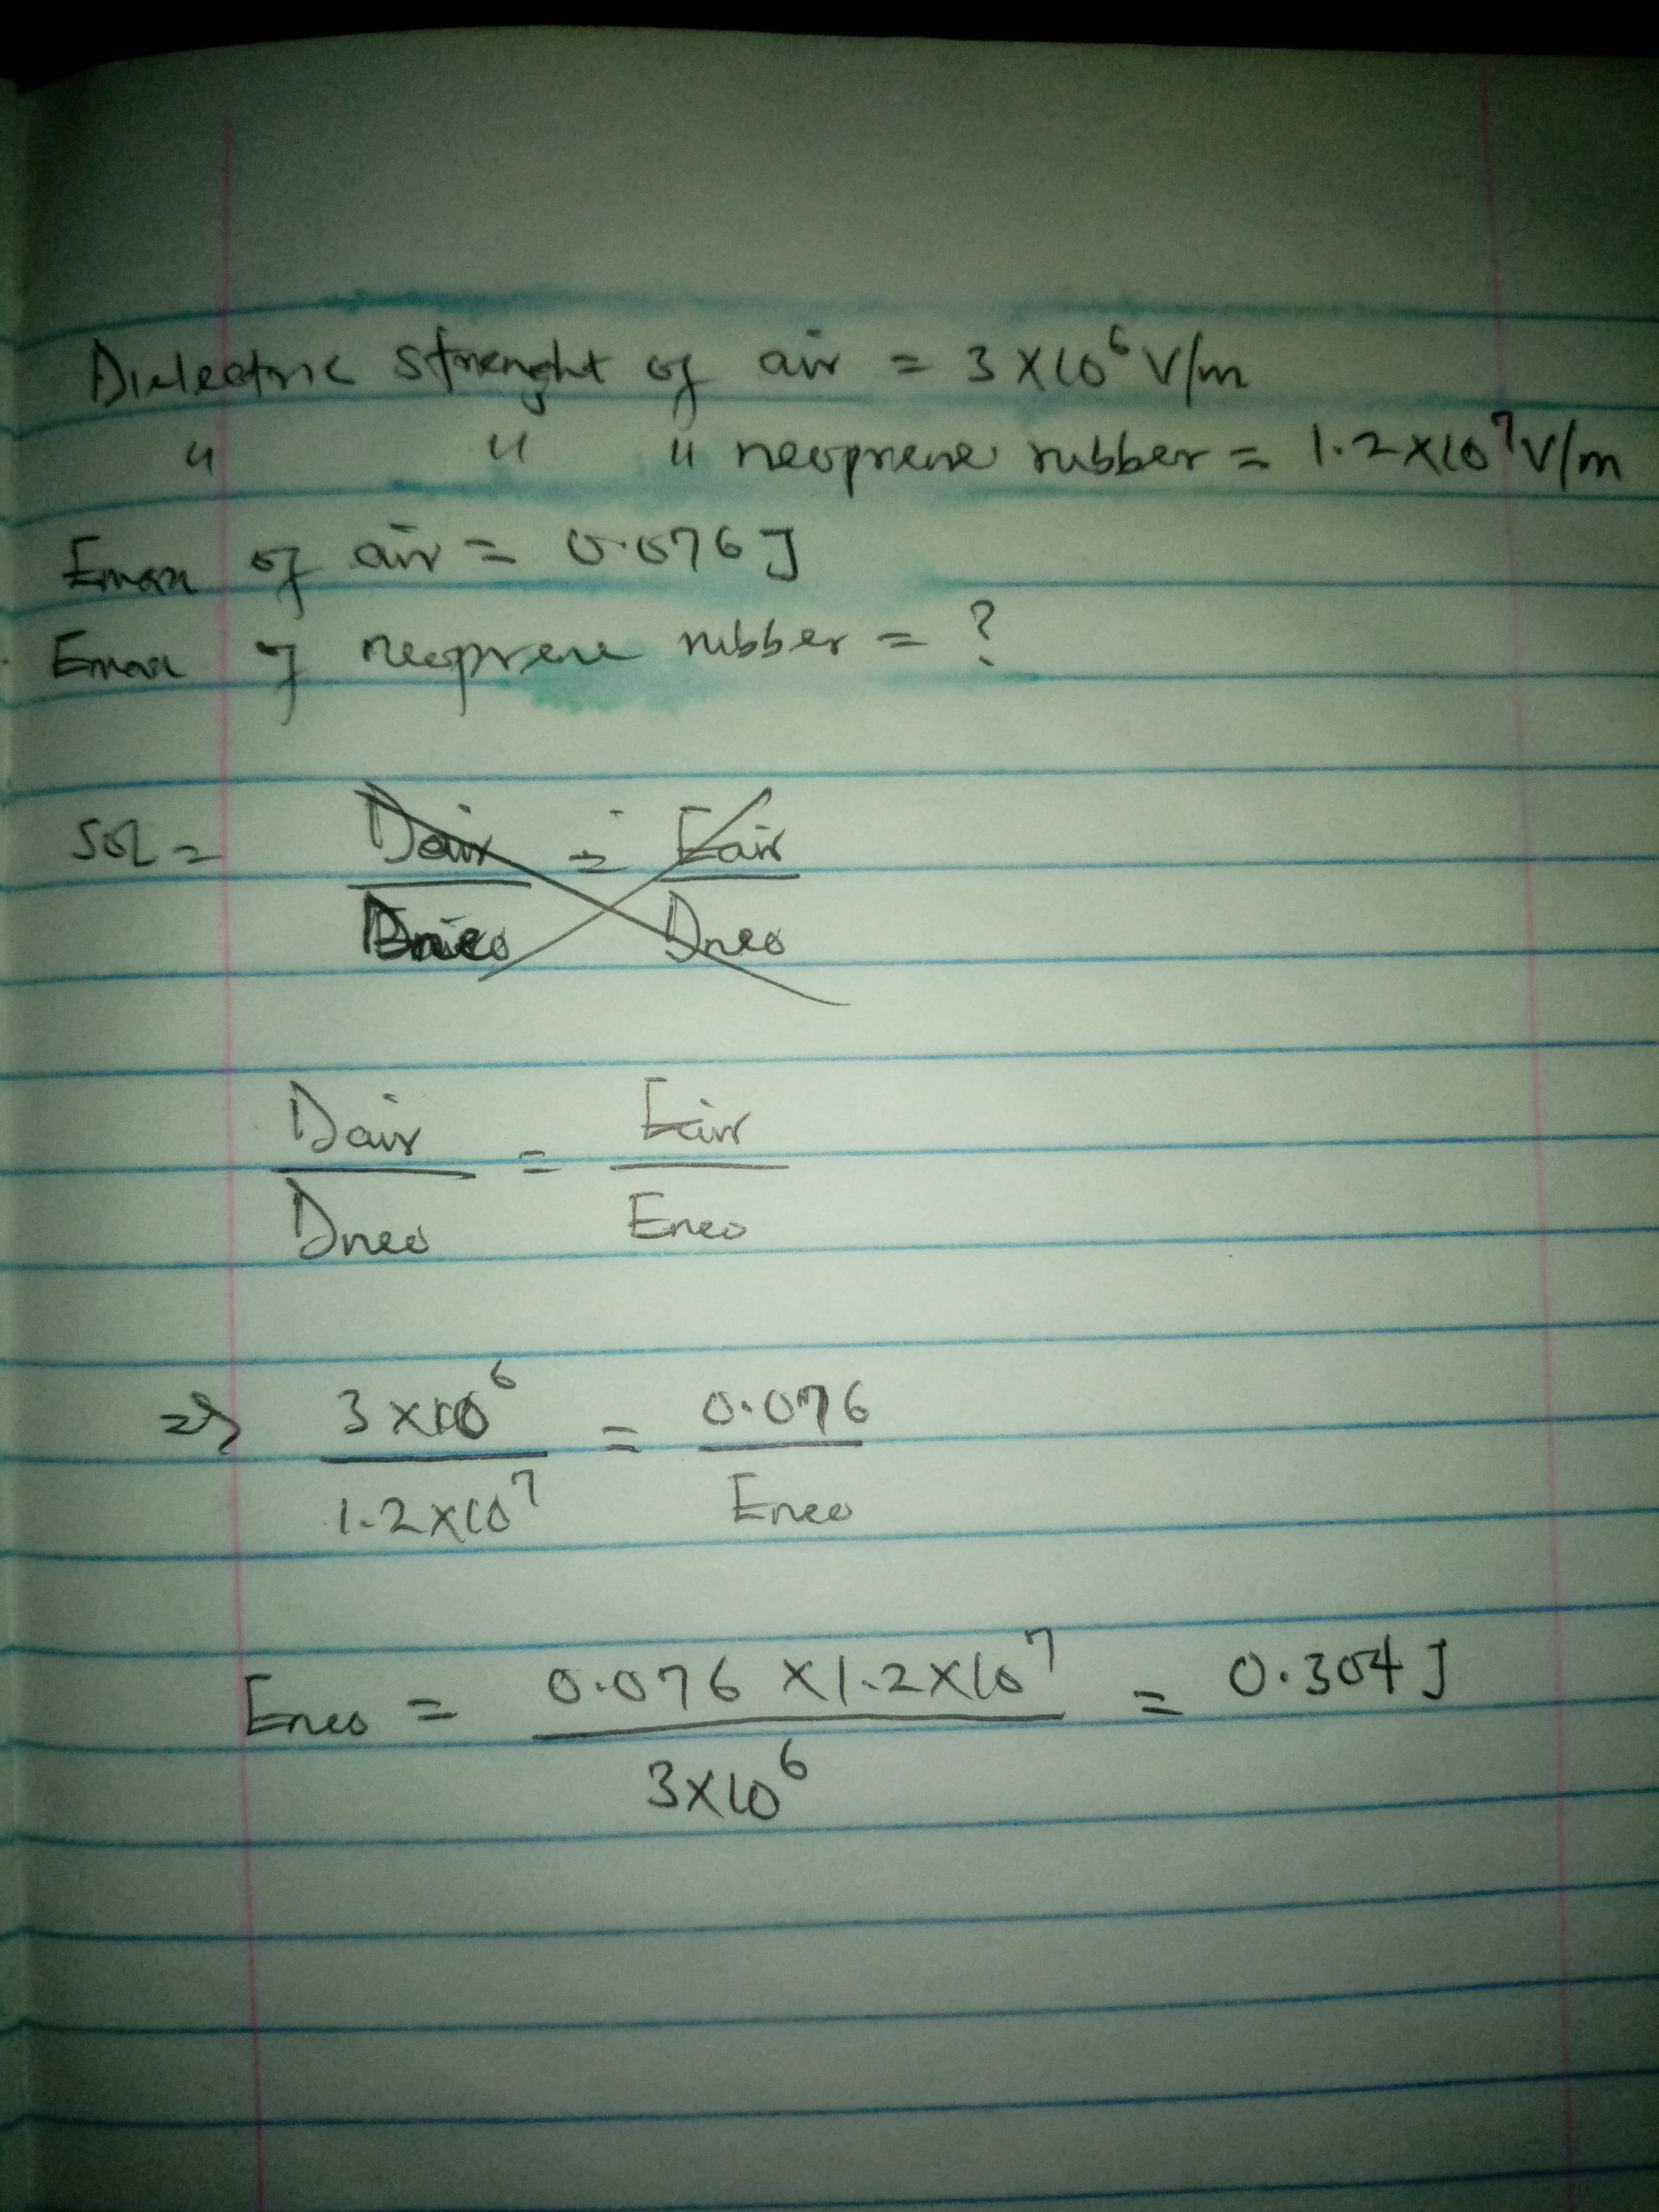 Dielectric strenght of air = 3 × 10⁶ V/m
" " " neoprene rubber = 1.2 × 10⁷ V/m
Emax of air = 0.076 J
Emax of neoprene rubber = ?
Sol = Dair / Dneo = Eair / Dneo
Dair / Dneo = Eair / Eneo
=> 3 × 10⁶ / 1.2 × 10⁷ = 0.076 / Eneo
Eneo = 0.076 × 1.2 × 10⁷ / 3 × 10⁶ = 0.304 J